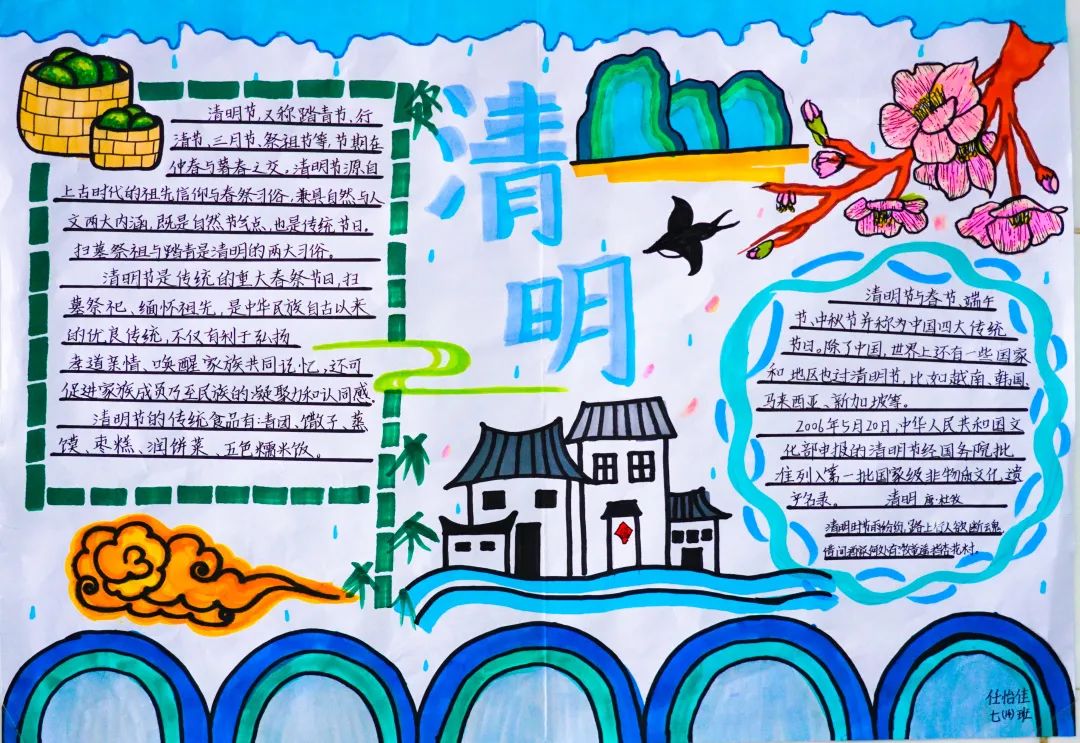 清明
清明节,又称踏青节、行
清节、三月节、祭祖节等,节期在
仲春与暮春之交。清明节源自
上古时代的祖先信仰与春祭习俗,兼具自然与人
文两大内涵,既是自然节气点,也是传统节日。
扫墓祭祖与踏青是清明的两大习俗。
清明节是传统的重大春祭节日,扫
墓祭祀、缅怀祖先,是中华民族自古以来
的优良传统,不仅有利于弘扬
孝道亲情、唤醒家族共同记忆,还可
促进家族成员乃至民族的凝聚力和认同感.
清明节的传统食品有:青团、馓子、蒸
馍、枣糕、润饼菜、五色糯米饭。
清明节与春节、端午
节、中秋节并称为中国四大传统
节日。除了中国,世界上还有一些国家
和地区也过清明节,比如越南、韩国、
马来西亚、新加坡等。
2006年5月20日,中华人民共和国文
化部申报的清明节经国务院批
准列入第一批国家级非物质文化遗
产名录。 清明 唐·杜牧
清明时节雨纷纷,路上行人欲断魂,
借问酒家何处有?牧童遥指杏花村。
任怡佳
七(14)班